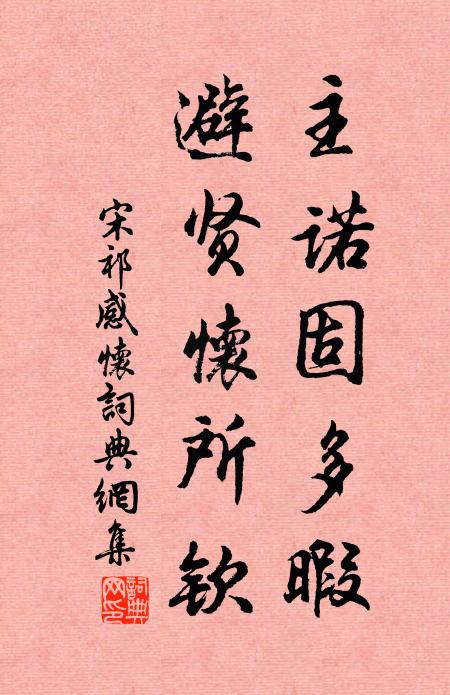 主諾固多暇
避贤懷所欽
宋祁感懷詞典網集
詞典网印